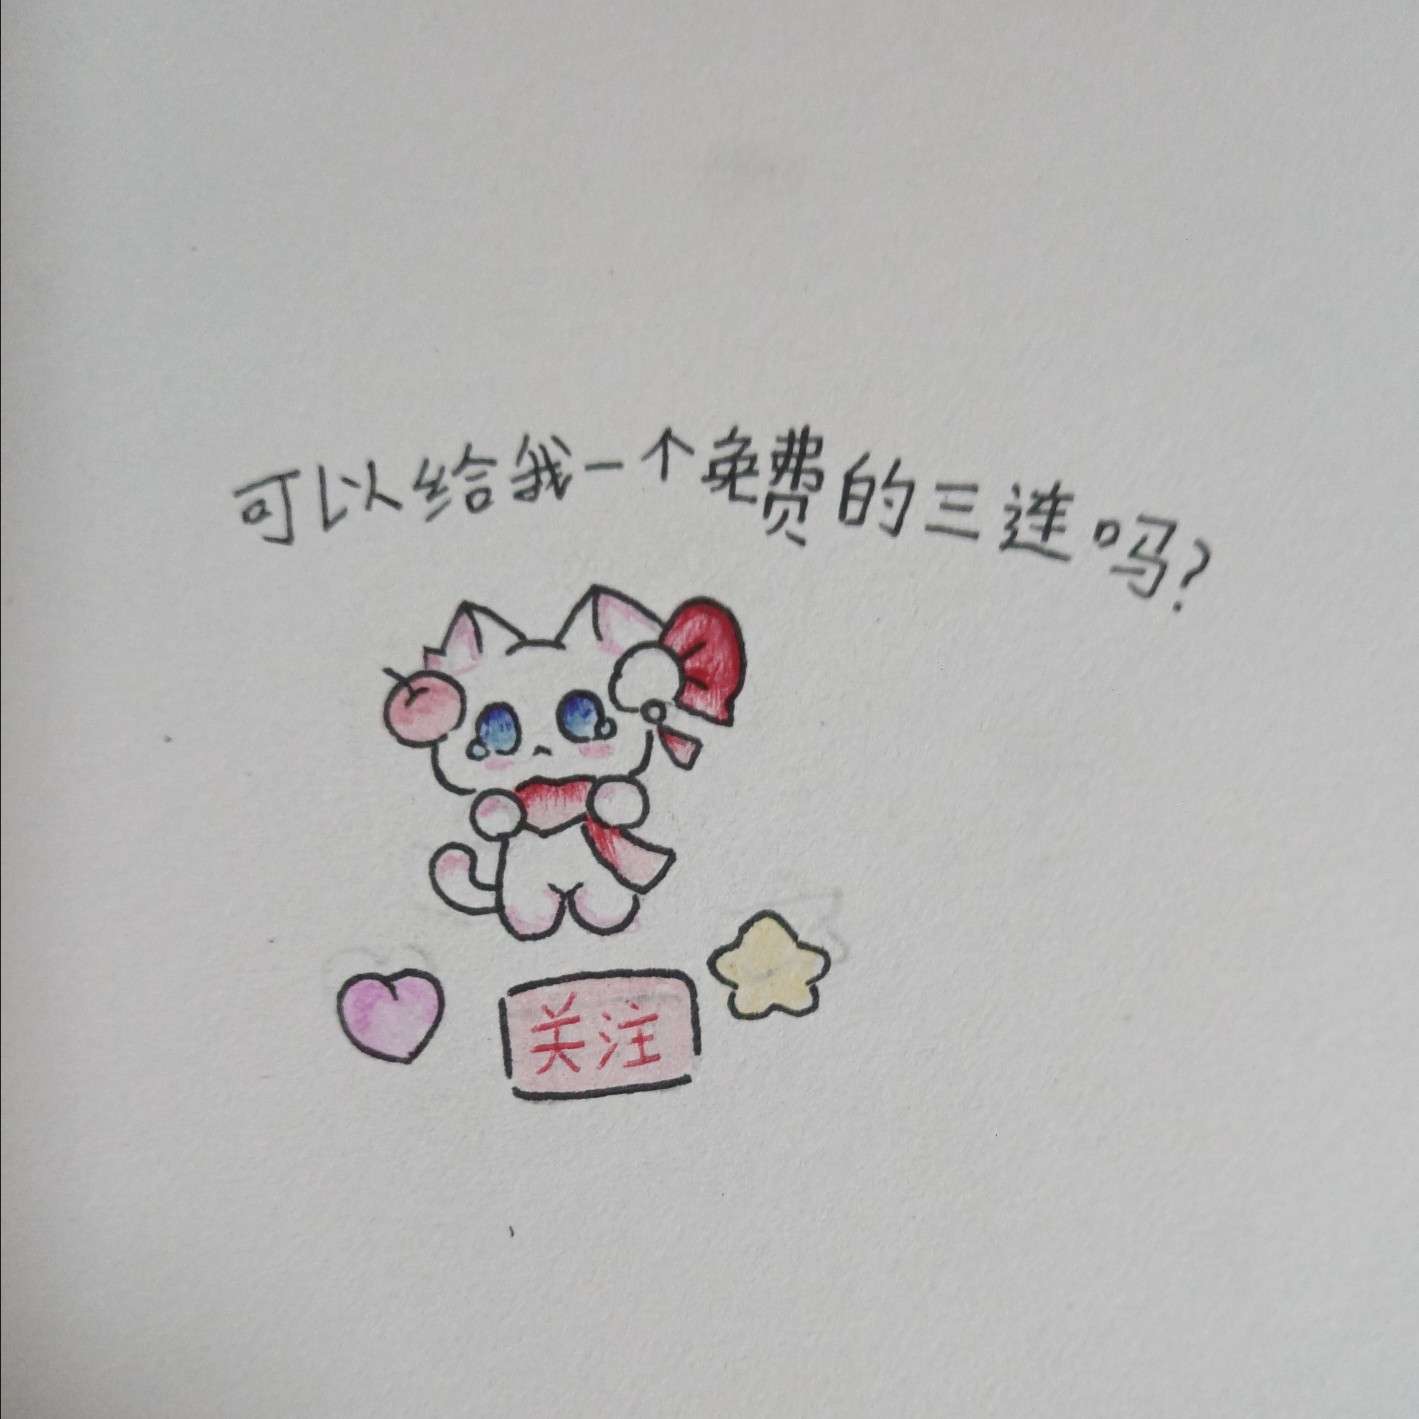 可以给我一个免费的三连吗?
关注